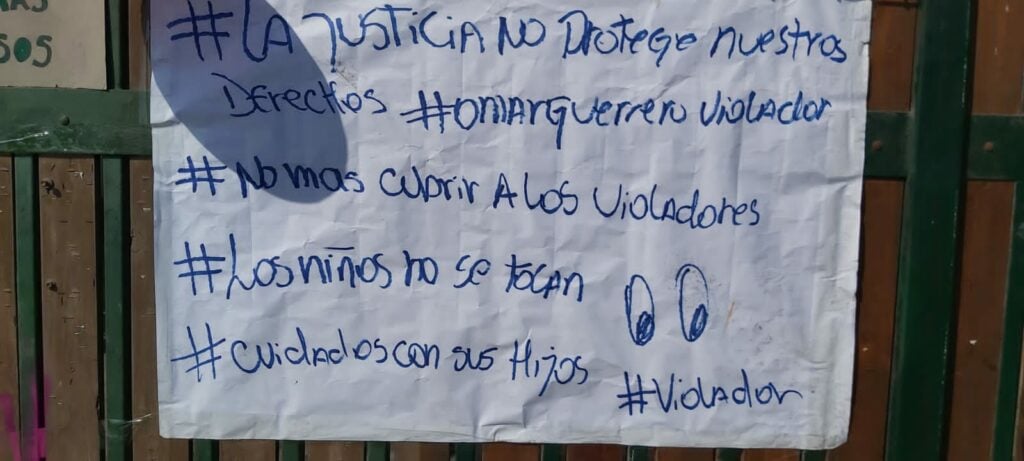 AS
SOS
#LA JUSTICIA NO Protege nuestros
Derechos #OMARGuerrero Violador
#No mas cubrir A los Violadores
#Los niños no se tocan
#cuidados con sus Hijos
#Violador